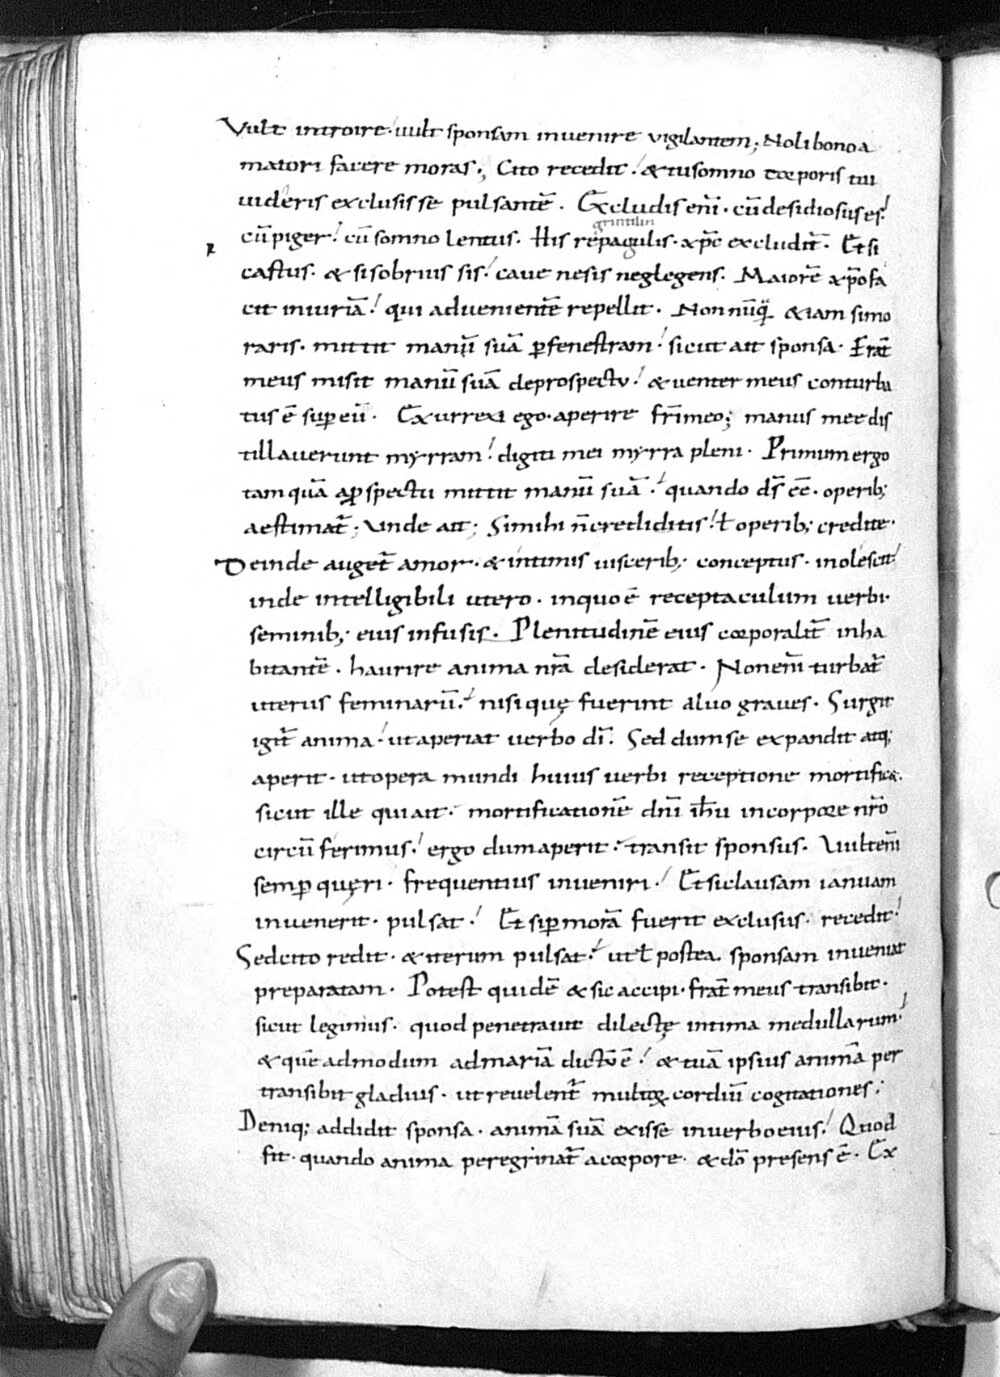 Vult introire· uult sponsam inuenire vigilantem; Noli bono a
maiori facere moras·, Cito recedit! & tu somno corporis tui
uideris exclusisse pulsantē. Excludis eni̅· cū desidiosus es!
grintilin
cū piger! cū somno lentus· His repagulis· xp̄c excludit̄. Et si
castus· & si sobrius sis! caue ne sis neglegens. Maiorē xp̄o fa
cit iniuriā! qui aduenientē repellit· Non nūq̄ &iam si mo
raris· mittit manū suā p̱ fenestram! sicut ait sponsa· Frat̄
meus misit manū suā de prospectu! & uenter meus conturba
tus ē sup̱ eū· Exurrexi ego· aperire fr̄i meo; manus meę dis
tillauerunt myrram! digiti mei myrra pleni· Primum ergo
tamquā a p̱spectu mittit manū suā! quando d̄s ēē· operib;
aestimat̄; Vnde ait; Si mihi n̄ creditis! ł operib; credite·
Deinde auget̄ amor· & intimis uisceribꝫ conceptus· inolescit!
inde intelligibili utero· in quo ē receptaculum uerbi·
seminib; eius infusis. Plenitudinē eius corporalit̄ inha
bitantē· haurire anima nr̄a desiderat· Non eni̅ turbat̄
uterus feminarū! nisi quę fuerint aluo graues· Surgit
igit̄ anima! ut aperiat uerbo dī. Sed dum se expandit atq;
aperit· ut opera mundi huius uerbi receptione mortificæ.
sicut ille qui ait· mortificationē dn̄i ih̄u in corpore nr̄o
circū ferimus! ergo dum aperit· transit sponsus. Vult eni̅
semp̱ quęri· frequentius inueniri! Et si clausam ianuam
inuenerit· pulsat! Et si p̱ morā fuerit exclusus· recedit!
Sed cito redit· & iterum pulsat! ut ł postea· sponsam inueniat
preparatam· Potest quidē & sic accipi· frat̄ meus transibit·
sicut legimus· quod penetrauit dilectę intima medullarum!
& quē admodum ad mariā dictū ē! & tuā ipsius animā per
transibit gladius· ut reuelent̄ multoꝝ cordiū cogitationes;
Deniq; addidit sponsa· animā suā exisse in uerbo eius! Quod
fit· quando anima peregrinat̄ a corpore· & dō presens ē· Ex